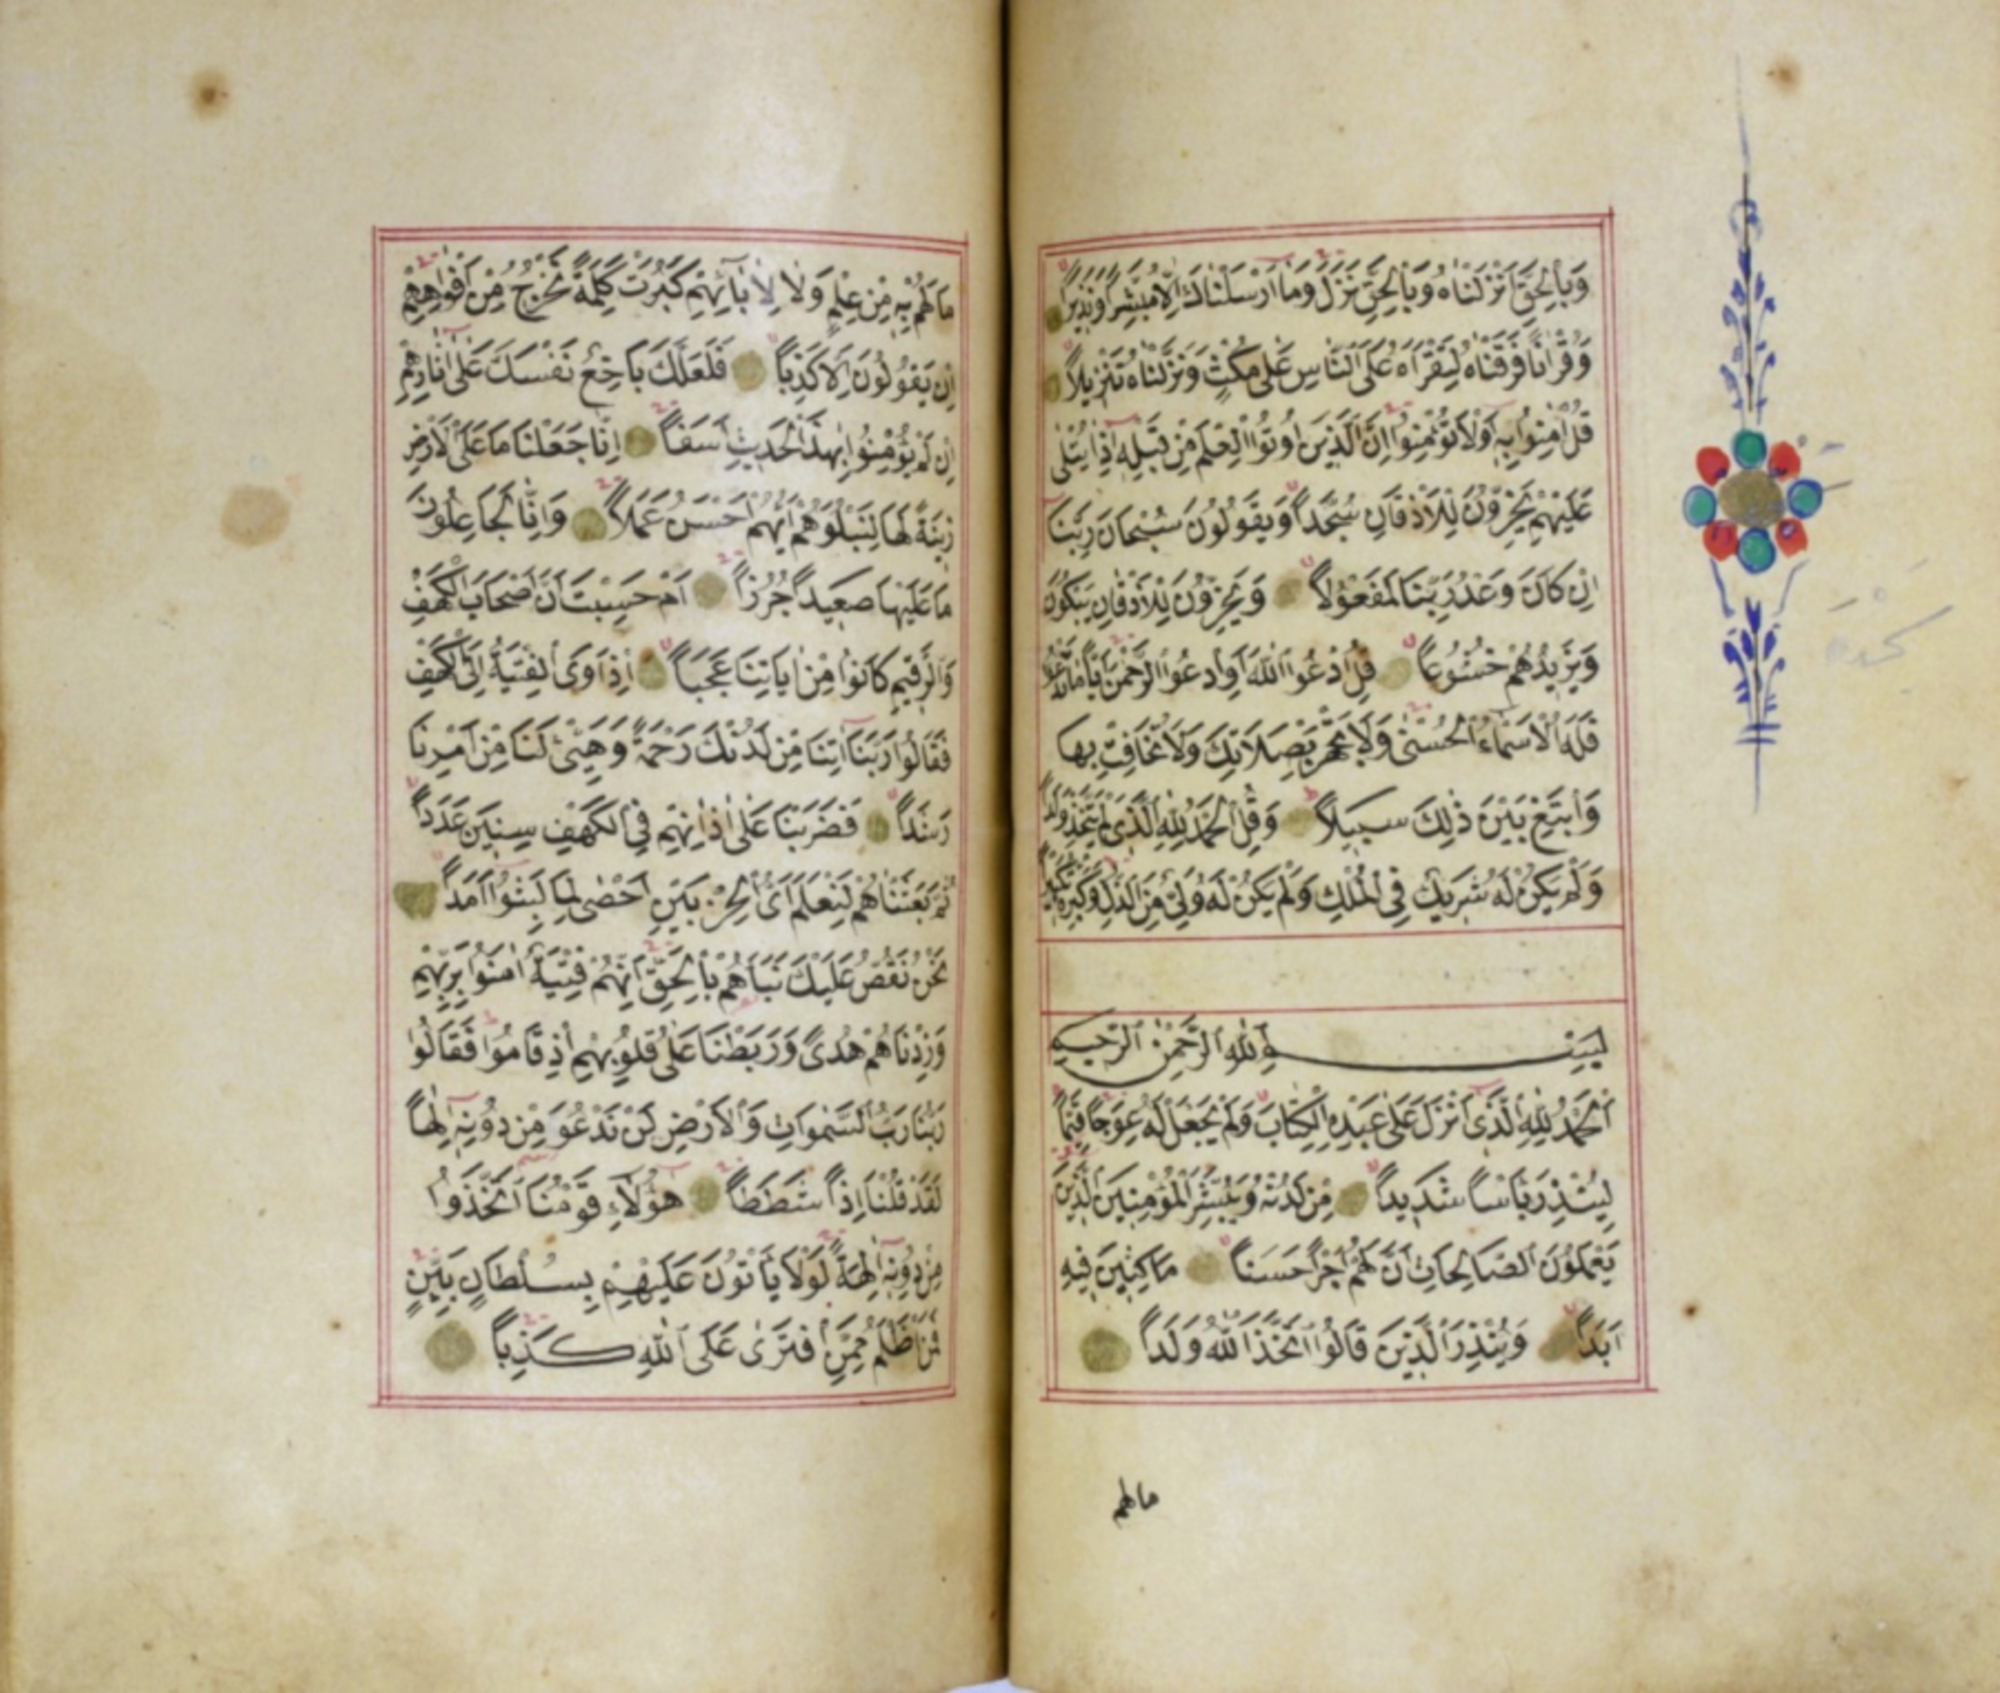 وَبِالْحَقِّ اَنْزَلْنَاهُ وَبِالْحَقِّ نَزَلَ وَمَا اَرْسَلْنَاكَ اِلَّا مُبَشِّراً وَنَذِيراً
وَقُرْاٰناً فَرَقْنَاهُ لِتَقْرَاَهُ عَلَى النَّاسِ عَلٰى مُكْثٍ وَنَزَّلْنَاهُ تَنْزِيلاً
قُلْ اٰمِنُوا بِهٖ اَوْلَا تُؤْمِنُوا اِنَّ الَّذِينَ اُوتُوا الْعِلْمَ مِنْ قَبْلِهٖ اِذَا يُتْلٰى
عَلَيْهِمْ يَخِرُّونَ لِلْاَذْقَانِ سُجَّداً وَيَقُولُونَ سُبْحَانَ رَبِّنَا
اِنْ كَانَ وَعْدُ رَبِّنَا لَمَفْعُولاً وَيَخِرُّونَ لِلْاَذْقَانِ يَبْكُونَ
وَيَزِيدُهُمْ خُشُوعاً قُلِ ادْعُوا اللّٰهَ اَوِ ادْعُوا الرَّحْمٰنَ اَيّاً مَا تَدْعُوا
فَلَهُ الْاَسْمَاءُ الْحُسْنٰى وَلَا تَجْهَرْ بِصَلَاتِكَ وَلَا تُخَافِتْ بِهَا
وَابْتَغِ بَيْنَ ذٰلِكَ سَبِيلاً وَقُلِ الْحَمْدُ لِلّٰهِ الَّذِى لَمْ يَتَّخِذْ وَلَداً
وَلَمْ يَكُنْ لَهُ شَرِيكٌ فِى الْمُلْكِ وَلَمْ يَكُنْ لَهُ وَلِىٌّ مِنَ الذُّلِّ وَكَبِّرْهُ تَكْبِيراً
بِسْمِ اللّٰهِ الرَّحْمٰنِ الرَّحِيمِ
اَلْحَمْدُ لِلّٰهِ الَّذِى اَنْزَلَ عَلٰى عَبْدِهِ الْكِتَابَ وَلَمْ يَجْعَلْ لَهُ عِوَجاً قَيِّماً
لِيُنْذِرَ بَاْساً شَدِيداً مِنْ لَدُنْهُ وَيُبَشِّرَ الْمُؤْمِنِينَ الَّذِينَ
يَعْمَلُونَ الصَّالِحَاتِ اَنَّ لَهُمْ اَجْراً حَسَناً مَاكِثِينَ فِيهِ
اَبَداً وَيُنْذِرَ الَّذِينَ قَالُوا اتَّخَذَ اللّٰهُ وَلَداً
مالهم
مَا لَهُمْ بِهٖ مِنْ عِلْمٍ وَلَا لِاٰبَائِهِمْ كَبُرَتْ كَلِمَةً تَخْرُجُ مِنْ اَفْوَاهِهِمْ
اِنْ يَقُولُونَ اِلَّا كَذِباً فَلَعَلَّكَ بَاخِعٌ نَفْسَكَ عَلٰى اٰثَارِهِمْ
اِنْ لَمْ يُؤْمِنُوا بِهٰذَا الْحَدِيثِ اَسَفاً اِنَّا جَعَلْنَا مَا عَلَى الْاَرْضِ
زِينَةً لَهَا لِنَبْلُوَهُمْ اَيُّهُمْ اَحْسَنُ عَمَلاً وَاِنَّا لَجَاعِلُونَ
مَا عَلَيْهَا صَعِيداً جُرُزاً اَمْ حَسِبْتَ اَنَّ اَصْحَابَ الْكَهْفِ
وَالرَّقِيمِ كَانُوا مِنْ اٰيَاتِنَا عَجَباً اِذْ اَوَى الْفِتْيَةُ اِلَى الْكَهْفِ
فَقَالُوا رَبَّنَا اٰتِنَا مِنْ لَدُنْكَ رَحْمَةً وَهَيِّئْ لَنَا مِنْ اَمْرِنَا
رَشَداً فَضَرَبْنَا عَلٰى اٰذَانِهِمْ فِى الْكَهْفِ سِنِينَ عَدَداً
ثُمَّ بَعَثْنَاهُمْ لِنَعْلَمَ اَىُّ الْحِزْبَيْنِ اَحْصٰى لِمَا لَبِثُوا اَمَداً
نَحْنُ نَقُصُّ عَلَيْكَ نَبَاَهُمْ بِالْحَقِّ اِنَّهُمْ فِتْيَةٌ اٰمَنُوا بِرَبِّهِمْ
وَزِدْنَاهُمْ هُدًى وَرَبَطْنَا عَلٰى قُلُوبِهِمْ اِذْ قَامُوا فَقَالُوا
رَبُّنَا رَبُّ السَّمٰوَاتِ وَالْاَرْضِ لَنْ نَدْعُوَ مِنْ دُونِهٖ اِلٰهاً
لَقَدْ قُلْنَا اِذاً شَطَطاً هٰؤُلَاءِ قَوْمُنَا اتَّخَذُوا
مِنْ دُونِهٖ اٰلِهَةً لَوْلَا يَاْتُونَ عَلَيْهِمْ بِسُلْطَانٍ بَيِّنٍ
فَمَنْ اَظْلَمُ مِمَّنِ افْتَرٰى عَلَى اللّٰهِ كَذِباً